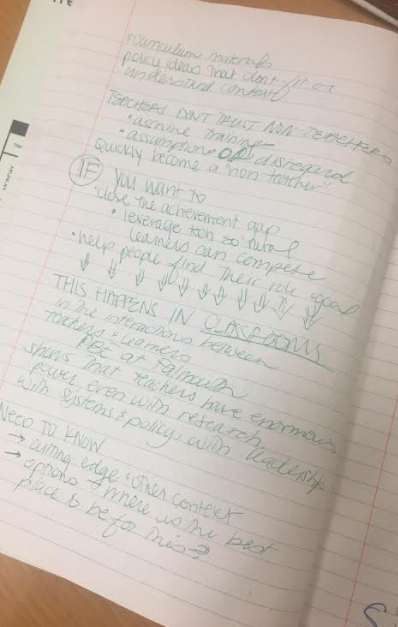 curriculum materials
policy ideas that dont fit or
understand context
TEACHERS DON'T TRUST NON-TEACHERS
• asenine training
• assumptions OR disregard
Quickly become a "non teacher"
IF you want to
• close the achievement gap
• leverage tech so rural
learners can compete
• help people find their role + goal
THIS HAPPENS IN CLASSROOMS
in the interactions between
teachers & learners
at Falmouth
shows that teachers have enormous
power, even with research
with systems & policy, with leadership
NEED TO KNOW
→ cutting edge & other context
→ options → where is the best
place to be for this?